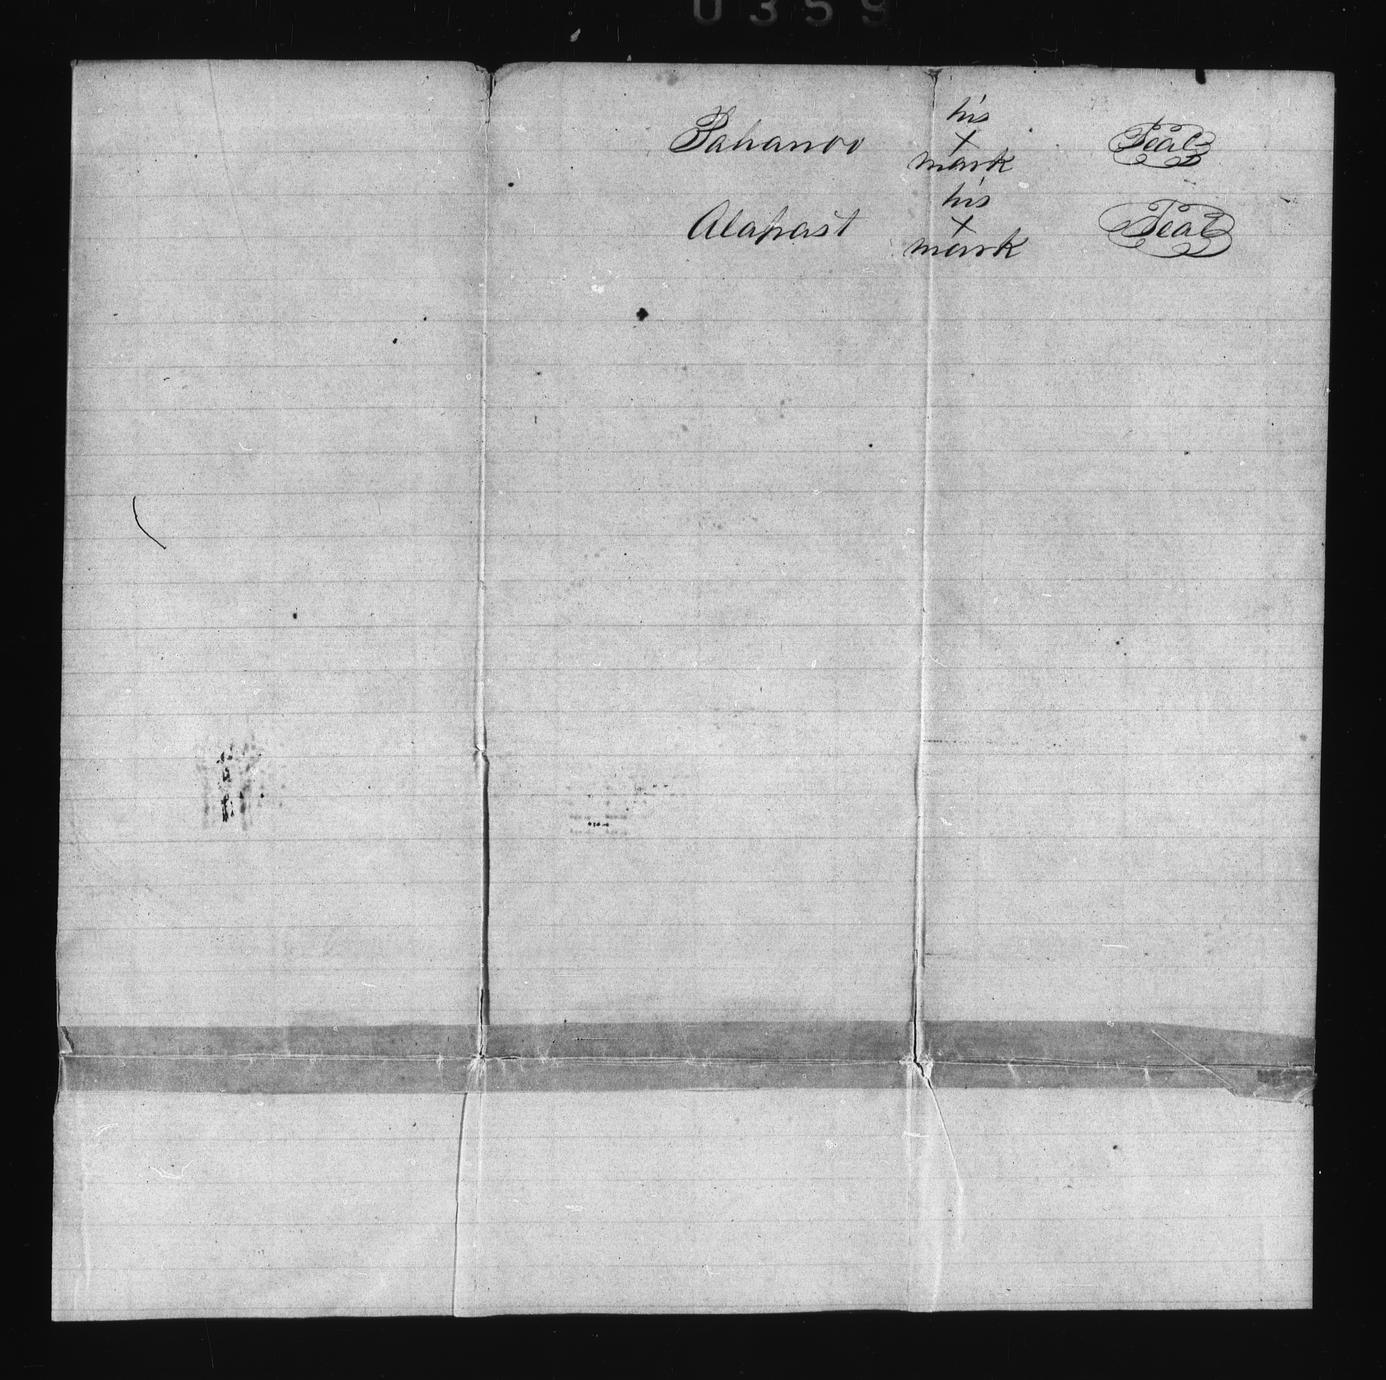 0359
his
Pahanoo x Seal
mark
his
Alapast x Seal
mark